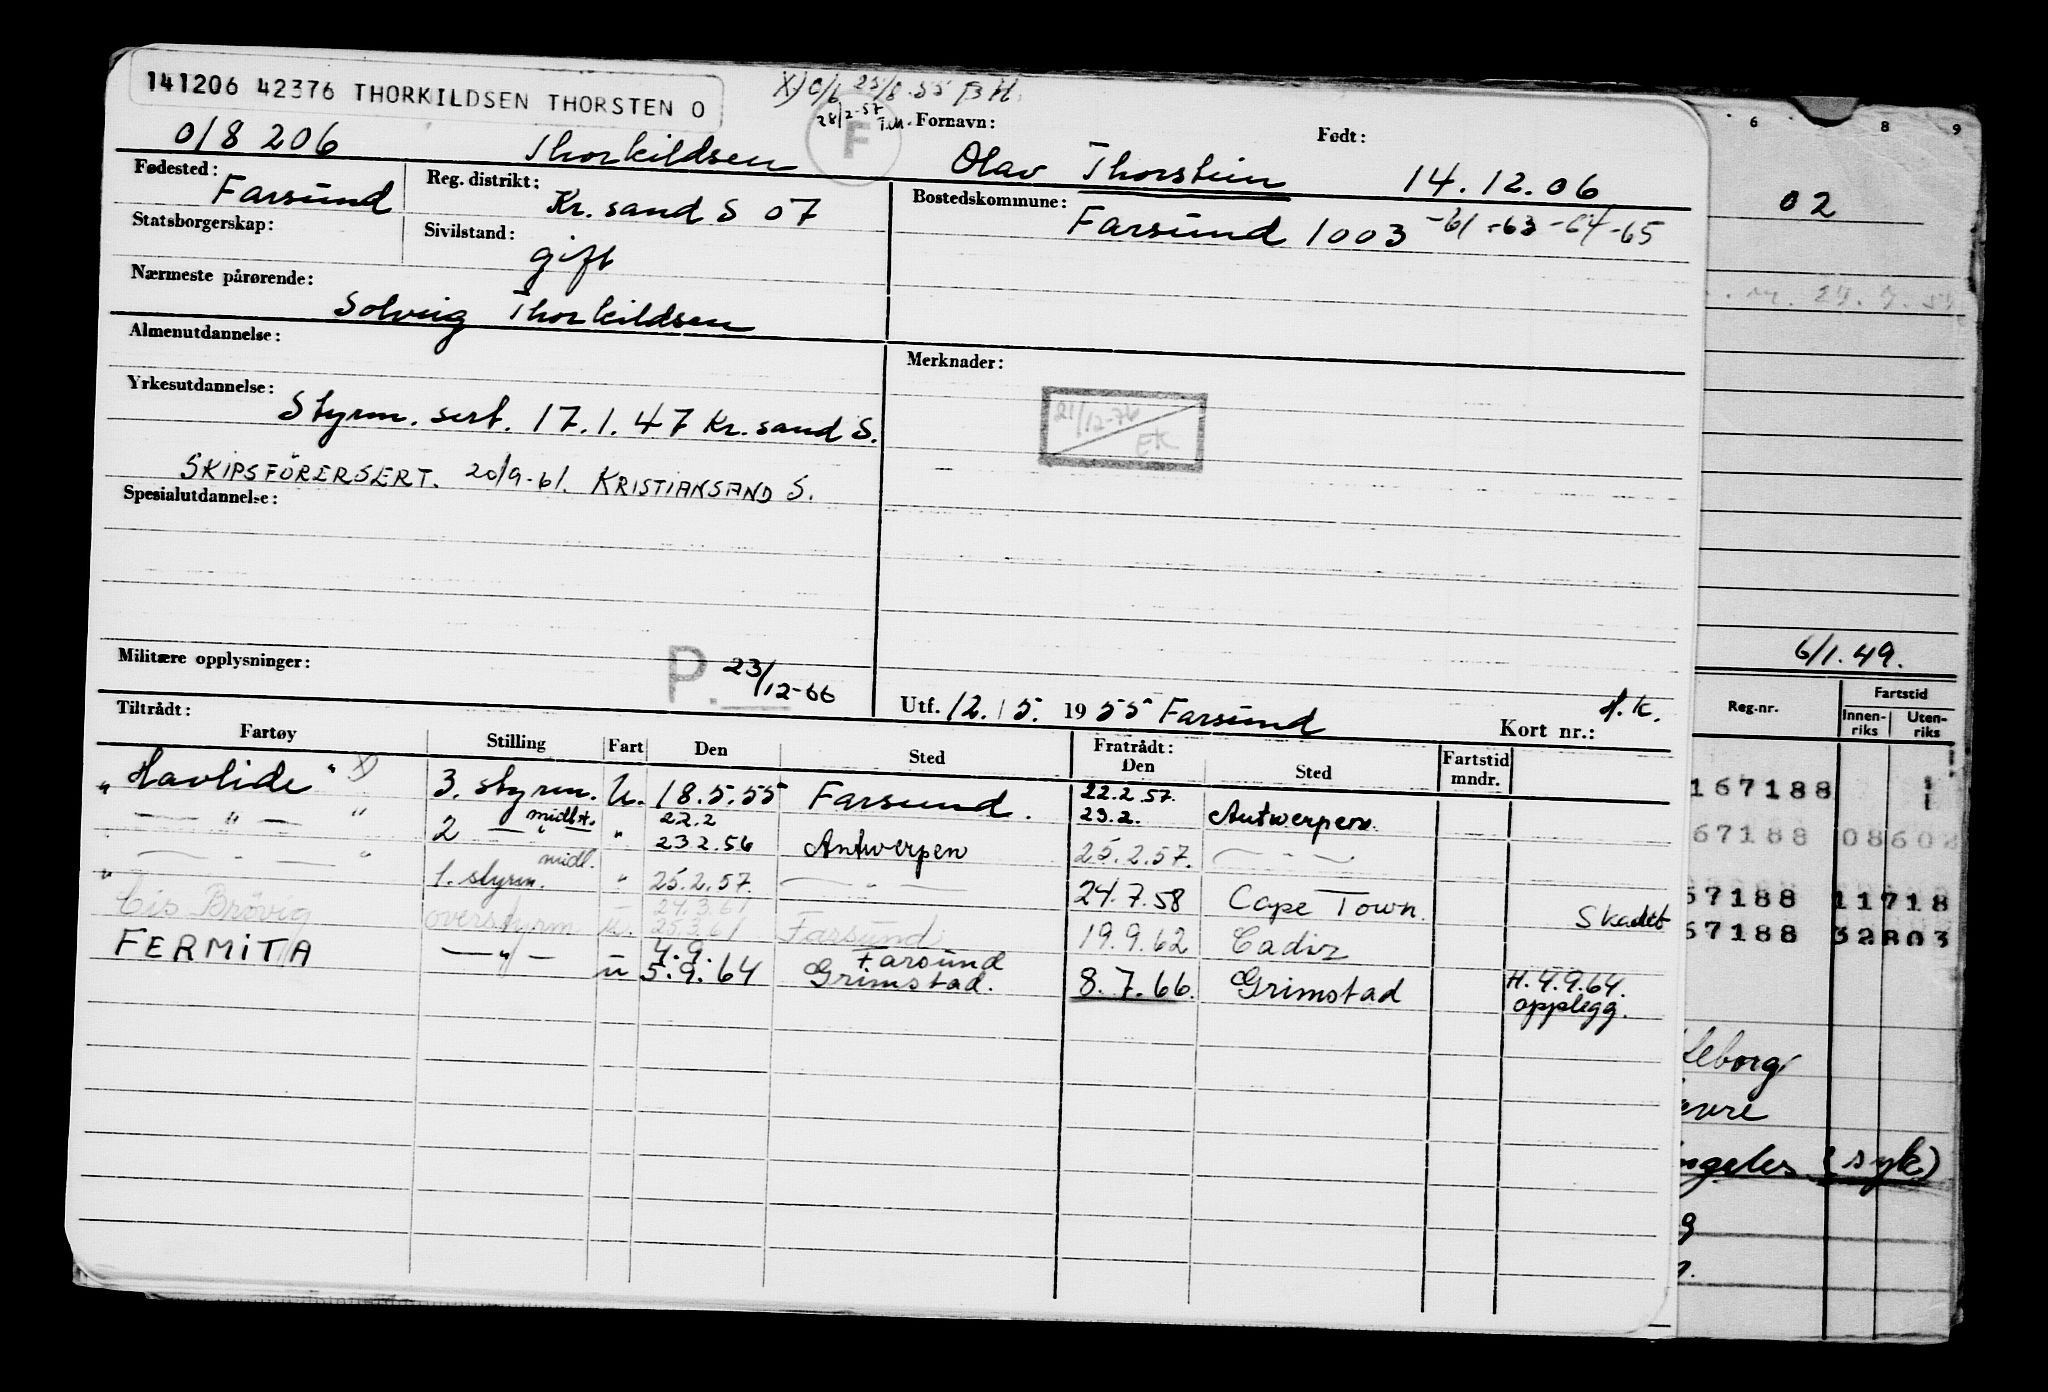 141206 42376 THORKILDSEN THORSTEN O
X) 0/6 25/8-55 BH.
28/2-57 T.M.
F
Fornavn:
Født:
018 206 Thorkildsen Olav Thorstein 14.12.06
Fødested: Farsund
Reg. distrikt: Kr. sand S 07
Bostedskommune: Farsund 1003 -61 -63 -64 -65
Statsborgerskap:
Sivilstand: gift
Nærmeste pårørende: Solveig Thorkildsen
Almenutdannelse:
Merknader:
Yrkesutdannelse: Styrm. sert. 17.1.47 Kr. sand S.
21/12-76 EK
SKIPSFÖRERSERT. 20/9-61. KRISTIANSAND S.
Spesialutdannelse:
Militære opplysninger: P. 23/12-66
Utf. 12./5. 1955 Farsund
Kort nr.: A.K.
Tiltrådt:
Fartøy Stilling Fart Den Sted Fratrådt: Den Sted Fartstid mndr.
"Havlide" X) 3. styrm. U. 18.5.55 Farsund. 22.2.57.
— " — " 2 — " — midlt. " 22.2 23.2.56 Antwerpen 23.2. Antwerpen.
" — " — " 1. styrm. midl. " 25.2.57. — " — 25.2.57. — " —
24.7.58 Cape Town. Skadet
Cis Brøvig overstyrm U. 24.3.61 25.3.61 Farsund 19.9.62 Cadiz
FERMITA — " — U 4.9. 5.9.64 Farsund Grimstad. 8.7.66. Grimstad H. 4.9.64. opplegg.
6 8 9
02
6/1.49.
Reg.nr. Fartstid
Innen-riks Uten-riks
167188
67188 08602
67188 11718
67188 32803
(syk)